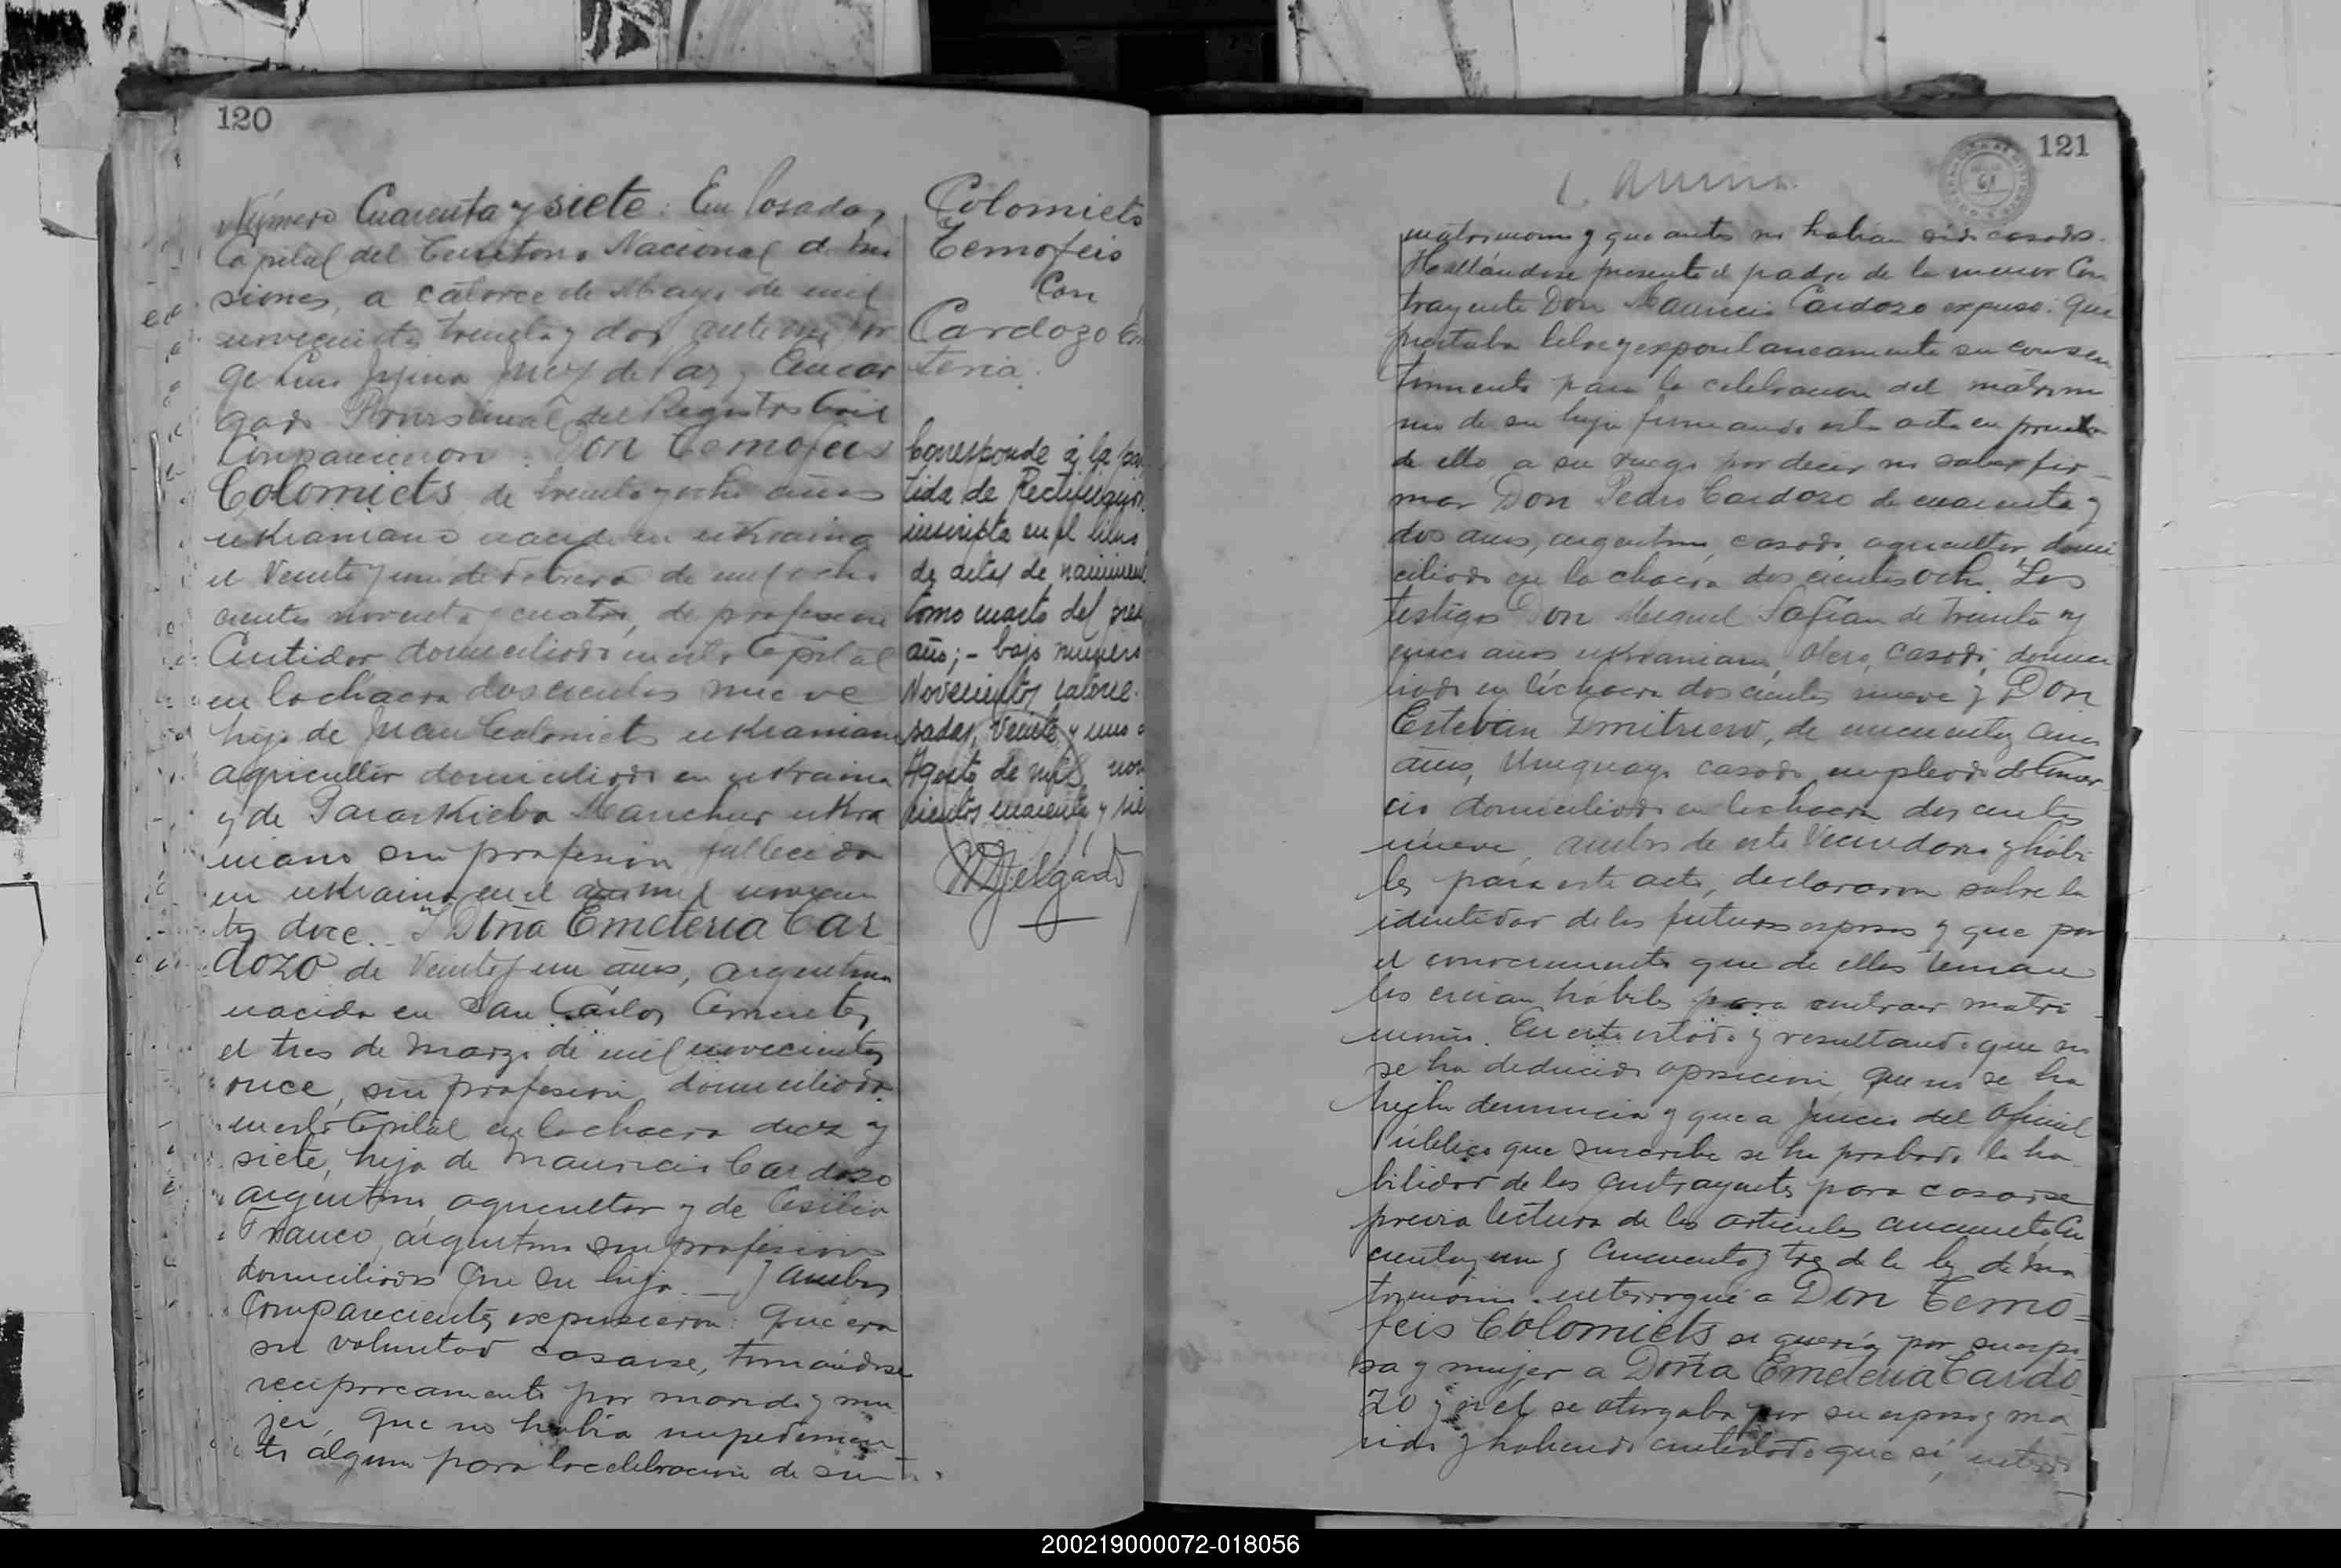 120
Número Cuarenta y siete: En Posadas,
Capital del Territorio Nacional de Mi
siones, a catorce de Mayo de mil
novecientos treinta y dos, ante mi Jor
ge Luis Juez de Paz y Encar
gado Provisional del Registro Civil
Comparecieron: Don Temofeis
Colomiets de treinta y ocho años
ukraniano nacido en ukraina
el veinte y uno de Febrero de mil ocho
cientos noventa y cuatro, de profesion
Curtidor domiciliado en esta Capital
en la chacra doscientos nueve
hijo de Juan Colomiets ukraniano
agricultor domiciliado en ukraina
y de Paraskieba Manchur ukra
niana sin profesion, fallecida
en ukraina en el año mil novecien
tos doce. Y Doña Emeteria Car
dozo de veinte y un años, argentina
nacida en San Carlos Corrientes
el tres de Marzo de mil novecientos
once, sin profesion, domiciliada
en esta Capital en la chacra diez y
siete, hija de Mauricio Cardozo
argentino agricultor y de Cesilia
Franco, argentina sin profesion
domiciliados con su hija. — Y ambos
Comparecientes expusieron: Que era
su voluntad casarse, tomandose
reciprocamente por marido y mu
jer, que no habia impedimen
to alguno para la celebracion de su
Colomiets
Temofeis
Con
Cardozo Em
teria.
Corresponde á la par
tida de Rectificación
inscripta en el libro
de actas de nacimient
tomo cuarto del pres
año; - bajo numero
Novecientos catorce.
sadas, Veinte y uno
Agosto de mil nov
cientos cuarenta y sie
Delgado
121
matrimonio y que antes no habian sido casados.
Hallándose presente el padre de la menor Con
trayente Don Mauricio Cardozo expuso: Que
prestaba libre y espontaneamente su consen
timiento para la celebracion del matrimo
nio de su hija firmando esta acta en prueba
de ello a su ruego por decir no saber fir
mar Don Pedro Cardozo de cuarenta y
dos años, argentino, casado, agricultor, domi
ciliado en la chacra doscientos ocho. Los
testigos Don Miguel Safian de treinta y
cinco años, ukraniano, casado, domici
liado en la chacra doscientos nueve y Don
Estevan Dmitruew, de cincuenta
años, Uruguayo casado empleado de Comer
cio domiciliado en la chacra doscientos
nueve, ambos de este Vecindario y hábi
les para este acto, declararon sobre la
identidad de los futuros esposos y que por
el conocimiento que de ellos tenian
los creian hábiles para contraer matri
monio. En este estado y resultando que no
se ha deducido oposicion, que no se ha
hecho denuncia y que a juicio del oficial
Público que suscribe se ha probado la ha
bilidad de los contrayentes para casarse
previa lectura de los articulos cincuenta cin
cuenta y uno y cincuenta y tres de la ley de ma
trimonio, interrogué a Don Temo
feis Colomiets si queria por su espo
sa y mujer a Doña Emeteria Cardo
zo y si él se otorgaba por su esposo y ma
rido y habiendo contestado que si, interro
200219000072-018056